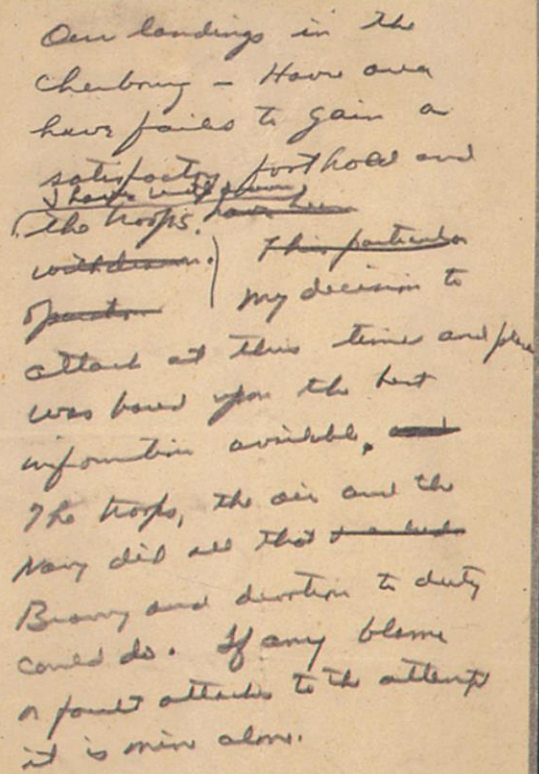 Our landings in the
Cherbourg - Havre area
have failed to gain a
satisfactory foothold and
I have withdrawn
the troops. have been
withdrawn. This particular
operation My decision to
attack at this time and place
was based upon the best
information available, and
The troops, the air and the
Navy did all that
Bravery and devotion to duty
could do. If any blame
or fault attaches to the attempt
it is mine alone.